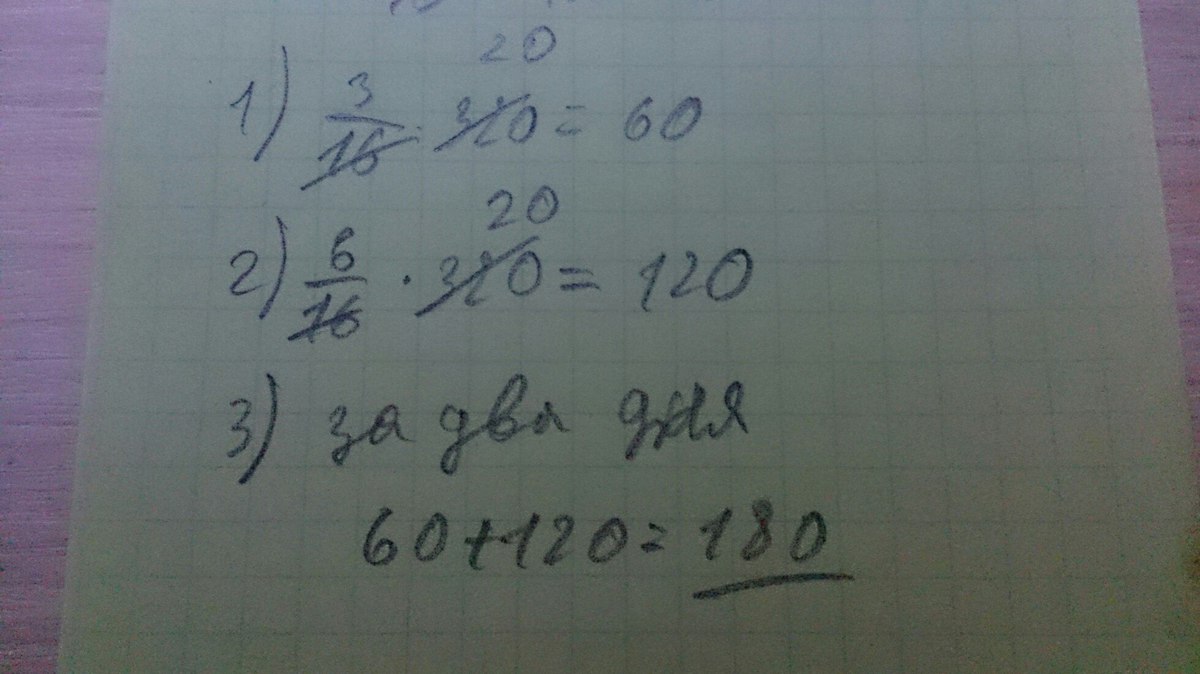 20
1) 3/16 · 320 = 60
20
2) 6/16 · 320 = 120
3) за два дня
60+120=180